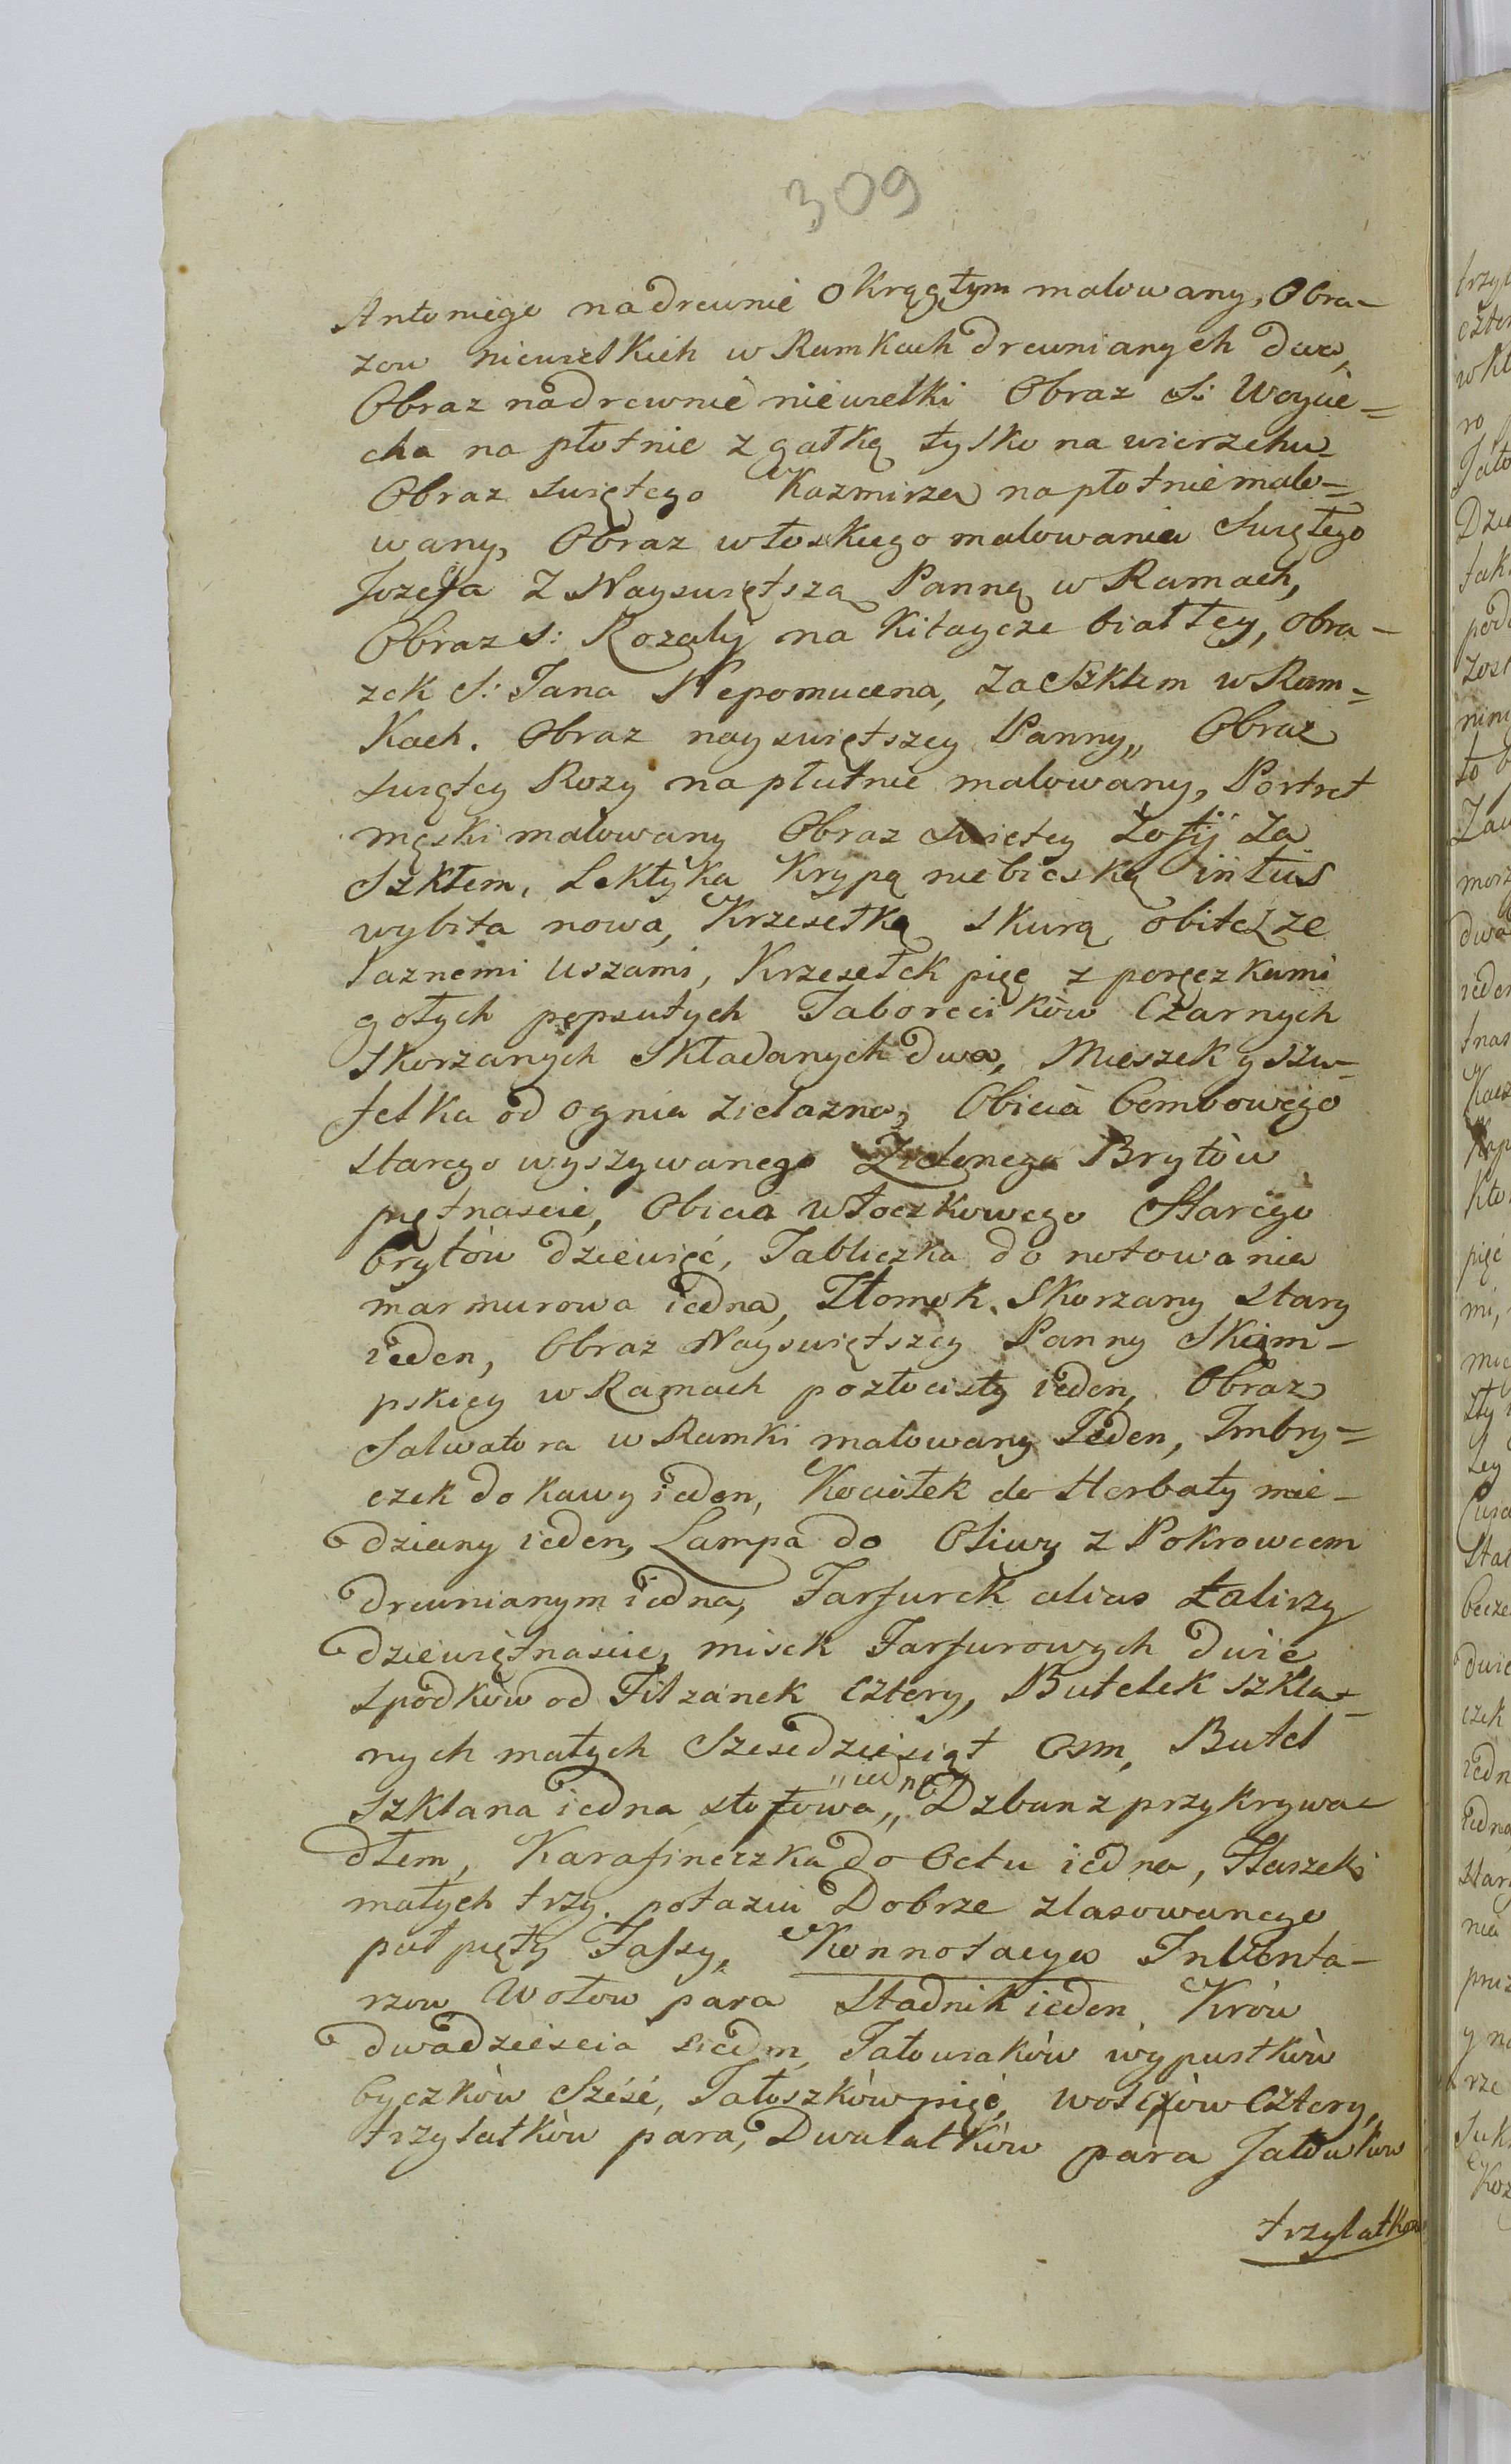 309
Antoniego na drewnie okrągłym malowany, Obra-
zow niewielkich w Ramkach drewnianych dwa,
Obraz na drewnie niewielki Obraz S: Woycie=
cha na płotnie z gałką tylko na wierzchu
Obraz swiętego Kazmirza na płotnie malo=
wany, Obraz włoskiego malowania Swiętego
Jozefa z Nayswiętszą Panną w Ramach,
Obraz S: Rozaly na Kitaycze białłey, obra-
zek S: Jana Nepomucena, za Szkłem w Ram=
kach. Obraz nayswiętszey Panny,, Obraz
swiętey Rozy na płutnie malowany, Portret
męski malowany Obraz swietey Zofij za
Szkłem, Lektyka Krypą niebieską intus
wybita nowa, Krzesełka skurą obite ze
laznemi uszami, Krzesełek pięc z poręczkami
gołych popsutych Taborecików Czarnych
skorzanych składanych dwa, Mieszek y szu=
felka od ognia zielazna, Obicia bombowego
starego wyszywanego Zielonego Brytów
piętnascie, Obicia włoczkowego Starego
brytów dziewięć, Tabliczka do notowania
marmurowa iedna, Tłomok Skorzany stary
ieden, Obraz Nayswiętszey Panny Skąm-
pskiey w Ramach pozłocisty ieden, Obraz
Salwatora w Ramki malowany Jeden, Imbry=
czek do kawy ieden, Kociołek do Herbaty mie-
dziany ieden, Lampa do Oliwy z Pokrowcem
drewnianym iedna, Farfurek alias talirzy
dziewiętnascie, misek Farfurowych dwie
spodków od Filzanek cztery, Butelek szkla=
nych małych Szescdziesiąt osm, Butel
Szklana iedna stofowa,, Dzban z przykrywa-
,,ieden
dłem, Karafineczka do Octu iedna, Flaszek
małych trzy. potaziu Dobrze zlasowanego
puł pięty Fassy, Konnotacya Inwenta-
rzow Wołow para Stadnik ieden Krów
dwadziescia siedm, Jałowiaków wypustków
byczków Szésć, Jałoszków pięć, wołczów cztery,
trzylatków para, Dwulatków para Jałówków
trzylatkow